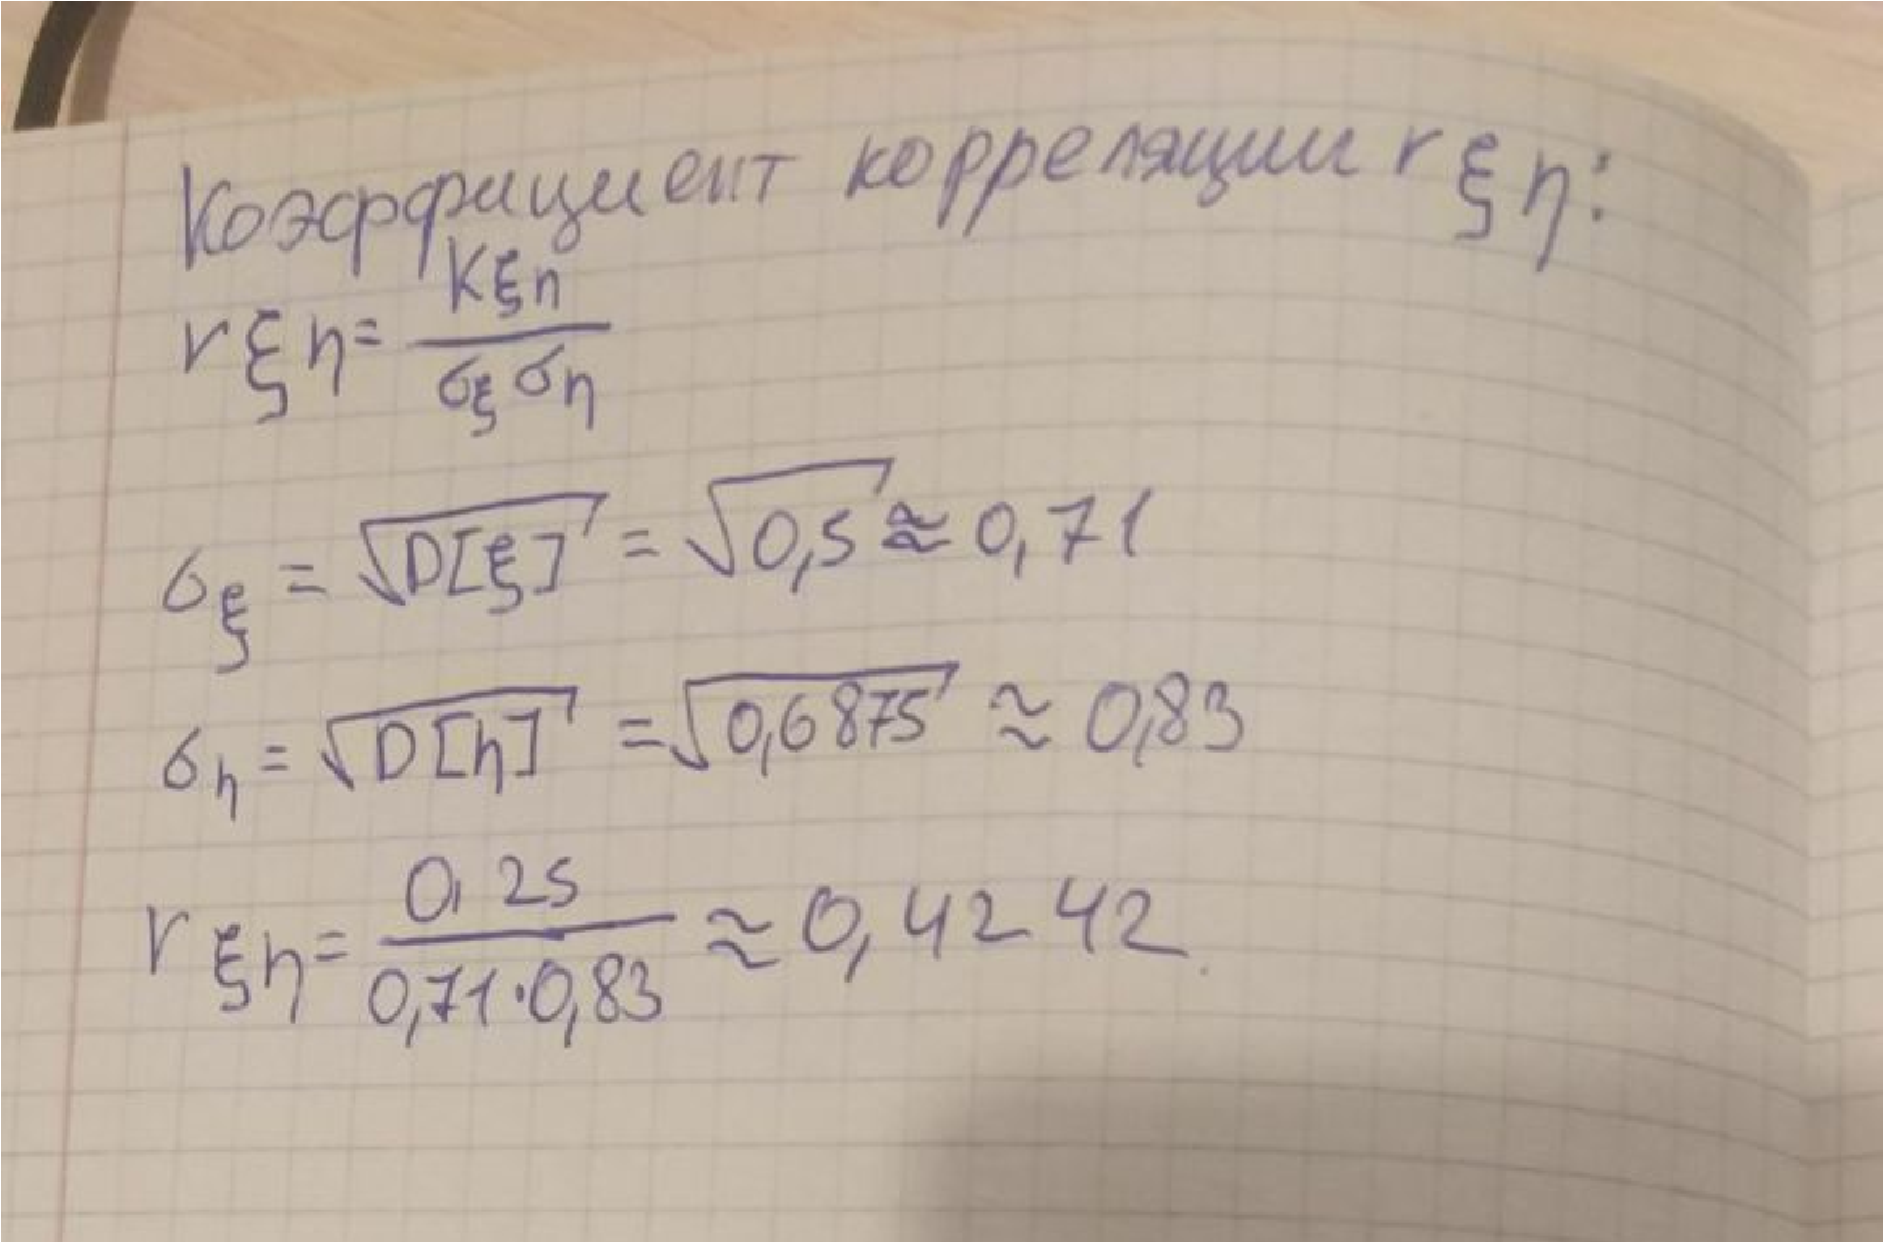 Коэффициент корреляции r ξ η:
r ξ η = K ξ η / σξ ση
σξ = √D[ξ] = √0,5 ≈ 0,71
ση = √D[η] = √0,6875 ≈ 0,83
r ξ η = 0,25 / 0,71·0,83 ≈ 0,4242